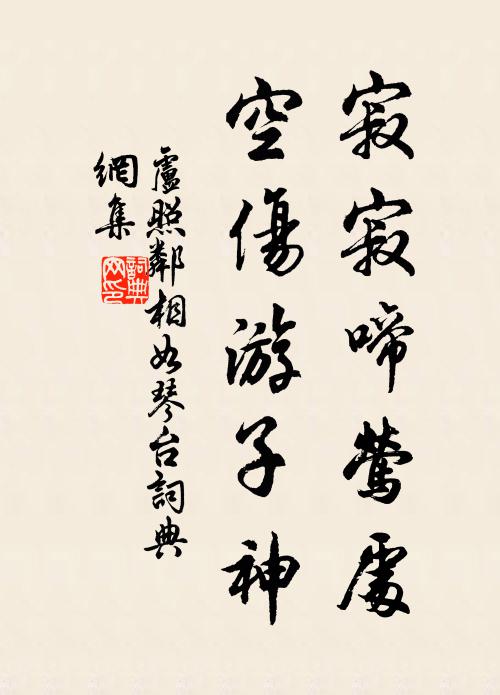 寂寂啼鶯處
空傷游子神
盧照鄰相如琴台詞典
網集
詞典
网印